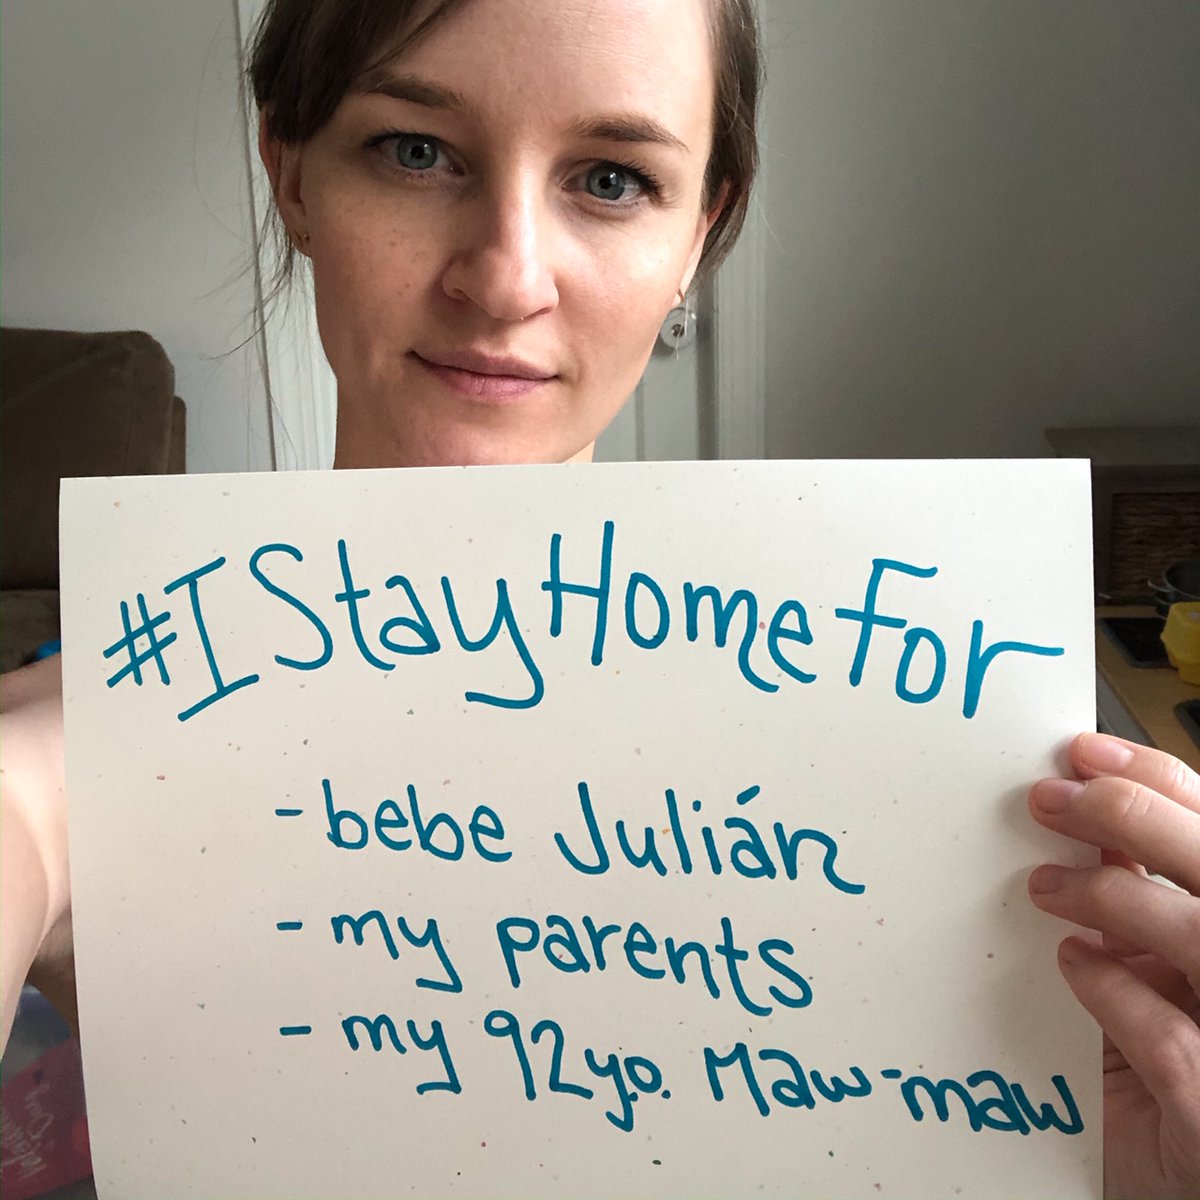 #IStayHomeFor
- bebe Julián
- my parents
- my 92y.o. Maw-maw